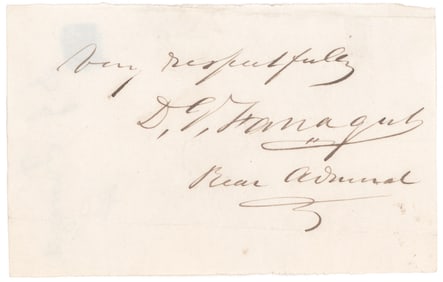 Very respectfully
D. G. Farragut
Rear Admiral